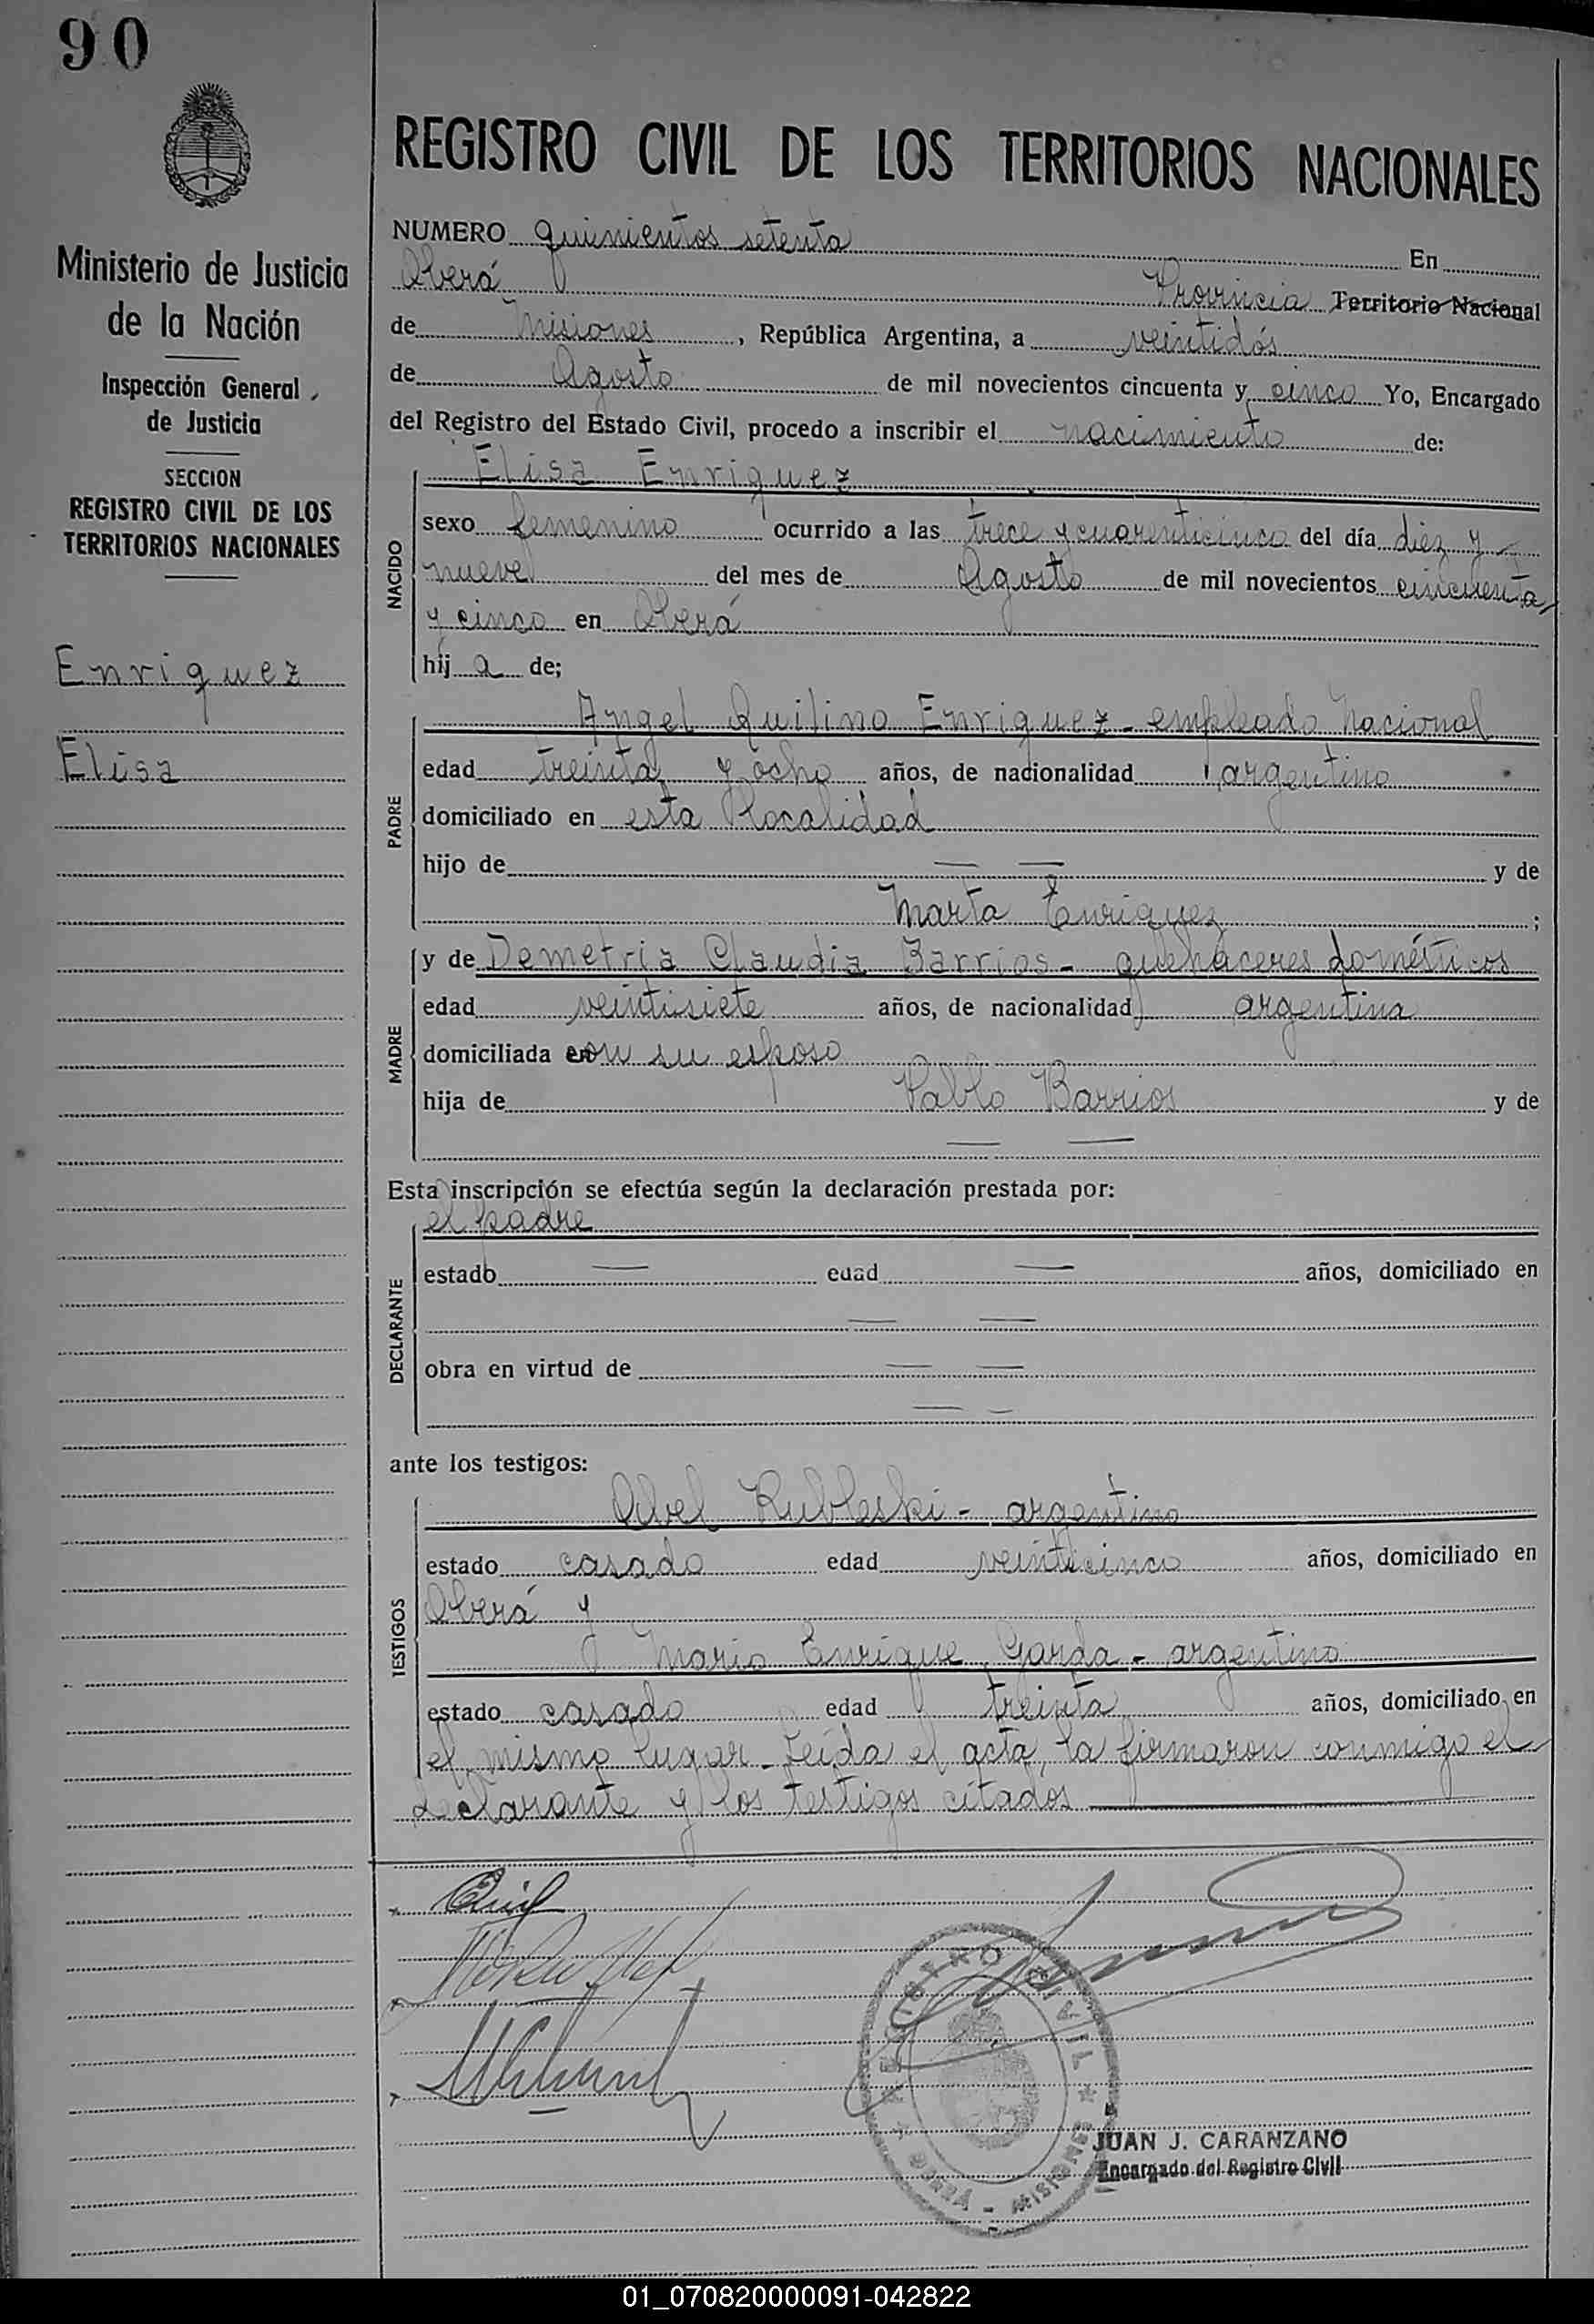 90
Ministerio de Justicia
de la Nación
Inspección General
de Justicia
SECCION
REGISTRO CIVIL DE LOS
TERRITORIOS NACIONALES
Enriquez
Elisa
REGISTRO CIVIL DE LOS TERRITORIOS NACIONALES
NUMERO quinientos setenta En
Oberá Provincia Territorio Nacional
de Misiones, República Argentina, a veintidós
de Agosto de mil novecientos cincuenta y cinco Yo, Encargado
del Registro del Estado Civil, procedo a inscribir el nacimiento de:
NACIDO
Elisa Enriquez
sexo femenino ocurrido a las trece y cuarenticinco del día diez y
nueve del mes de Agosto de mil novecientos cincuenta
y cinco en Oberá
hij a de;
PADRE
Angel Quilino Enriquez - empleado Nacional
edad treinta y ocho años, de nacionalidad argentino
domiciliado en esta localidad
hijo de — — y de
Marta Enriquez ;
MADRE
y de Demetria Claudia Barrios - quehaceres domésticos
edad veintisiete años, de nacionalidad argentina
domiciliada con su esposo
hija de Pablo Barrios y de
— —
Esta inscripción se efectúa según la declaración prestada por:
DECLARANTE
el padre
estado — edad — años, domiciliado en
— —
obra en virtud de — —
— —
ante los testigos:
TESTIGOS
Abel Rubleski - argentino
estado casado edad veinticinco años, domiciliado en
Oberá y
Mario Enrique Garda - argentino
estado casado edad treinta años, domiciliado en
el mismo lugar - Leída el acta, la firmaron conmigo el
declarante y los testigos citados
REGISTRO CIVIL * OBERÁ - MISIONES
JUAN J. CARANZANO
Encargado del Registro Civil
01_070820000091-042822